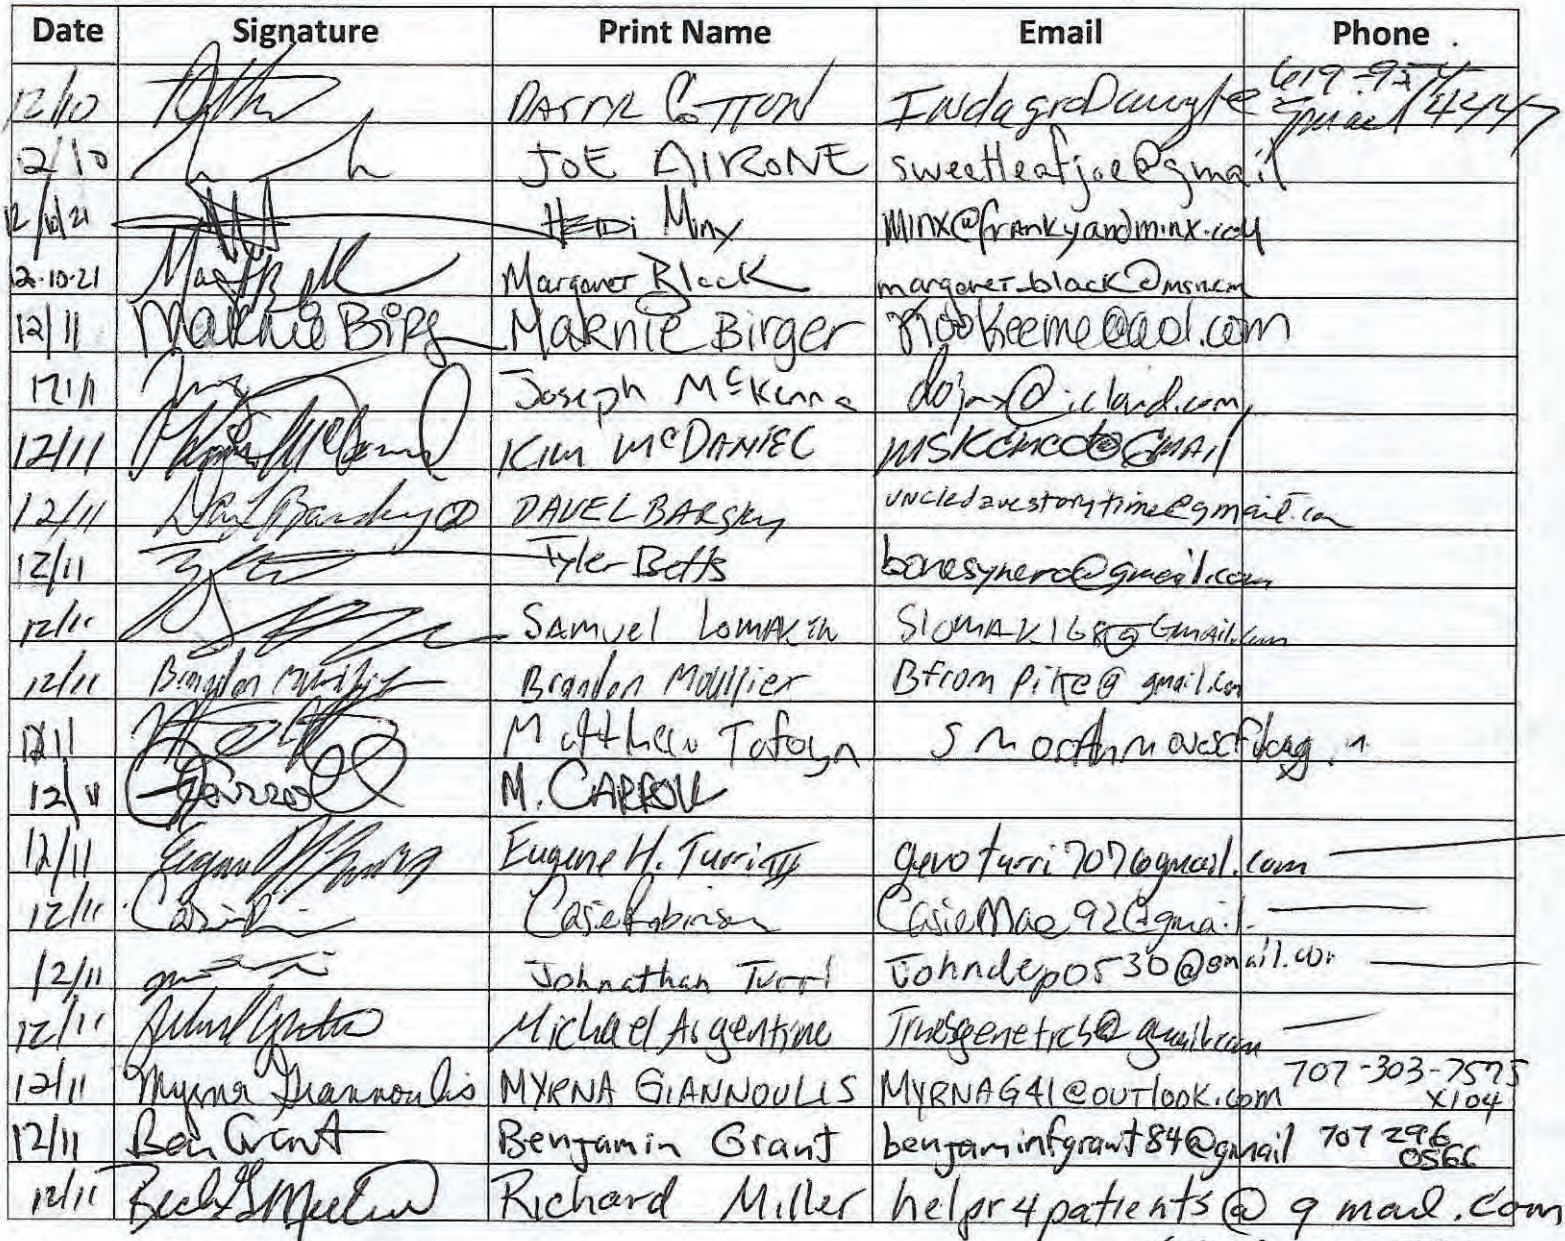 Date Signature Print Name Email Phone
12/10 DARRYL COTTON 619-954-4447
12/10 JOE AIRONE sweetleafjoe@gmail
12/10/21 HEIDI Minx Minx@frankyandminx.com
12-10-21 Margaret Black margaret_black@msn.com
12/11 Marnie Birger Marnie Birger Kookeeme@aol.com
12/11 Joseph McKenna @icloud.com
12/11 KIM McDANIEL MSKCMCD@GMAIL
12/11 DAVE L BARSKY uncledavestorytime@gmail.com
12/11 Tyler Betts bonesynero@gmail.com
12/11 SAMUEL LOMAKIN SLOMAK168@Gmail.com
12/11 Brandon Moulfier Bfrompike@gmail.com
12/11 Matthew Tafoya
12/11 Carroll M. CARROLL
12/11 Eugene H. Turri III gevoturri707@gmail.com
12/11 Casie Robinson CasieMae92@gmail.
12/11 Johnathan Turri Johndepo530@gmail.com
12/11 Michael Argentine @gmail.com
12/11 Myrna Giannoulis MYRNA GIANNOULIS MYRNAG41@OUTlook.com 707-303-7575 x104
12/11 Ben Grant Benjamin Grant benjaminfgrant84@gmail 707 296 0566
12/11 Richard Miller helpr4patients@gmail.com